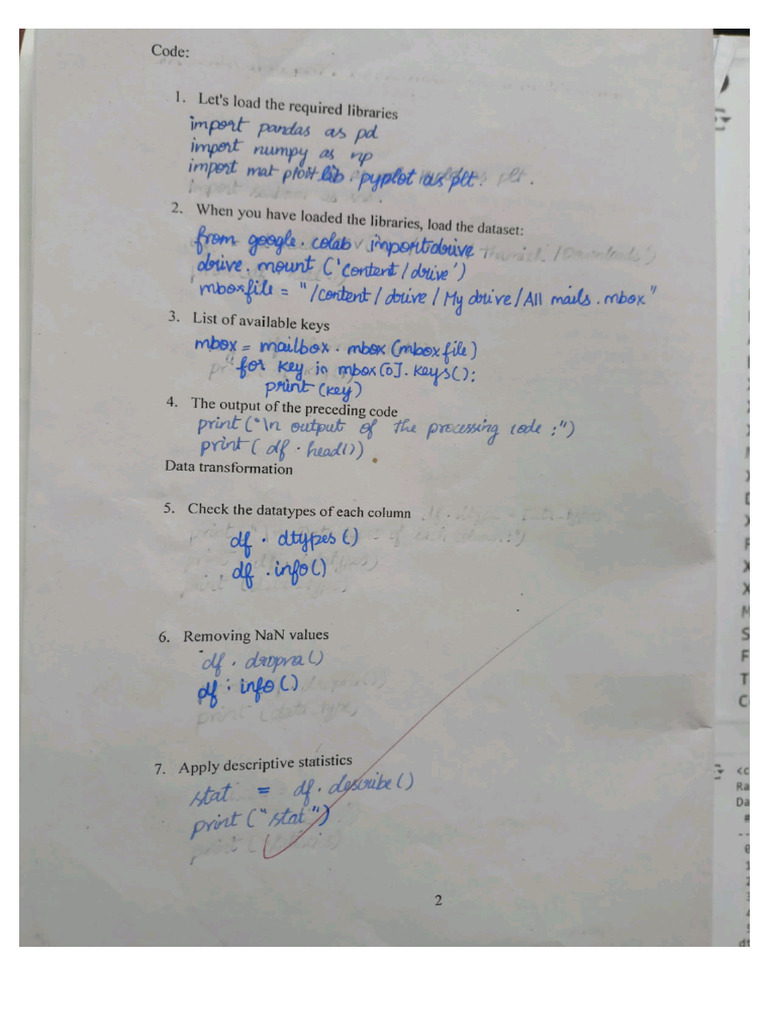 Code:
1. Let's load the required libraries
import pandas as pd
import numpy as np
import mat plotlib . pyplot as plt .
2. When you have loaded the libraries, load the dataset:
from google . colab import drive
drive . mount ('content / drive')
mboxfile = "/content / drive / My drive / All mails . mbox"
3. List of available keys
mbox = mailbox . mbox (mboxfile)
for key in mbox[0] . keys():
print (key)
4. The output of the preceding code
print ("\n output of the processing code :")
print ( df . head())
Data transformation
5. Check the datatypes of each column
df . dtypes ()
df . info ()
6. Removing NaN values
df . dropna ()
df . info ()
7. Apply descriptive statistics
stat = df . describe ()
print ("stat")
2